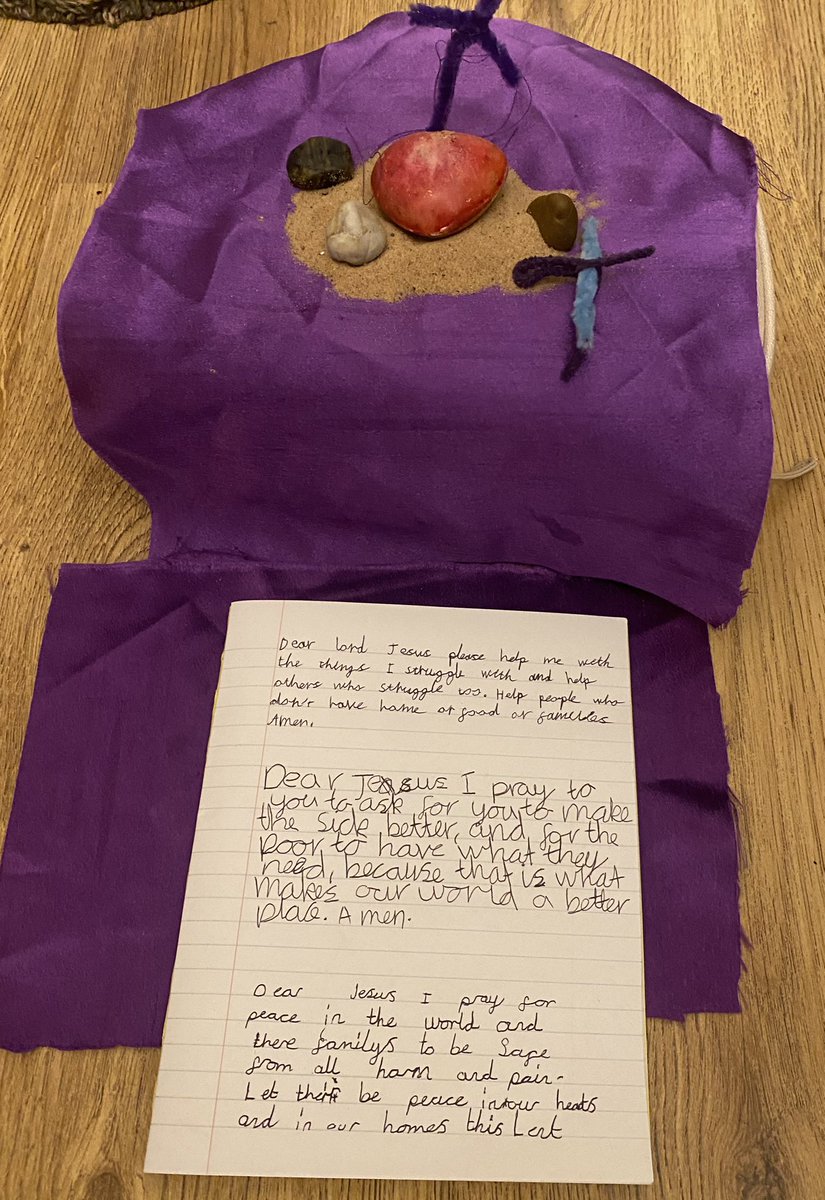 Dear lord Jesus please help me with
the things I struggle with and help
others who struggle too. Help people who
don't have home or food or families
Amen.
Dear Jesus I pray to
you to ask for you to make
the sick better, and for the
poor to have what they
need, because that is what
makes our world a better
place. Amen.
Dear Jesus I pray for
peace in the world and
there familys to be safe
from all harm and pain.
Let be peace in our hearts
and in our homes this Lent